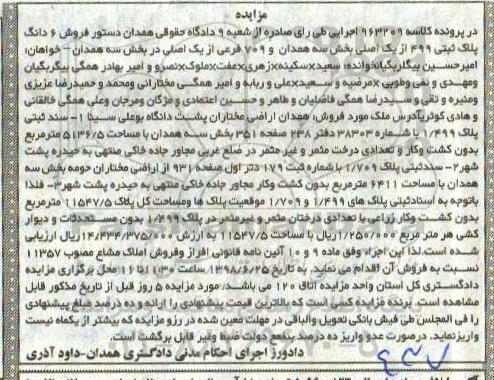 مزایده
در پرونده کلاسه ۹۶۳۲۰۹ اجرایی طی رای صادره از شعبه ۹ دادگاه حقوقی همدان دستور فروش ۶ دانگ
پلاک ثبتی ۴۹۹ از یک اصلی بخش سه همدان و ۷۰۹ فرعی از یک اصلی در بخش سه همدان – خواهان:
امیرحسین بیگلربگیان خوانده: سعید×سکینه×زهری×عفت×ملوک×نصرو و امیر بهادر همگی بیگربگیان
ومهدی و نقی وطوبی ×مرضیه و سعید×علی و ربابه و امیر همگی مختارانی ومحمد و حمیدرضا عزیزی
ومنیره و نقی و سیدرضا همگی فاضلیان و طاهر و حسین اعتمادی و مژگان ومرجان وعلی همگی خالقانی
و هادی کوثر یآدرس ملک مورد فروش: همدان اراضی مختاران پشت دانگاه بوعلی سینا ۱- سند ثبتی
پلاک ۱/۴۹۹ با شماره ۳۸۳۰۳ دفتر ۲۳۸ صفحه ۳۵۱ بخش سه همدان با مساحت ۵۱۳۶/۵ مترمربع
بدون کشت وکار و تعدادی درخت مثمر و غیر مثمر در ضلع غربی مجاور جاده خاکی منتهی به حیدره پشت
شهر۲- سند ثبتی پلاک ۱/۷۰۹ با شماره ثبت ۱۷۹ دتر اول صفحه ۹۳۱ از اراضی مختاران حومه بخش سه
همدان با مساحت ۶۴۱۱ مترمربع بدون کشت وکار مجاور جاده خاکی منتهی به حیدره پشت شهر۳- فلذا
باتوجه به اسنادثبتی پلاک های ۱/۴۹۹ و ۱/۷۰۹ موقعیت پلاک ها ومساحت کل پلاک ۱۱۵۴۷/۵ مترمربع
بدون کشت وکار زراعی با تعدادی درختان مثمر و غیرمثمر در پلاک ۱/۴۹۹ بدون مستحدثات و دیوار
کشی هر متر مربع ۱/۲۵۰/۰۰۰ریال با مساحت ۱۱۵۴۷/۵ به ارزش ۱۴/۴۳۴/۳۷۵/۰۰۰ریال ارزیابی
شده است.لذا این اجراء وفق ماده ۹ و ۱۰ آئین نامه قانونی افراز وفروش املاک مشاع مصوب ۱۱۳۵۷
نسبت به فروش آن اقدام می نماید. به تاریخ ۱۳۹۸/۶/۲۵ ساعت ۱۱:۳۰ تا ۱۱ محل برگزاری مزایده
دادگستری کل استان واحد مزایده اتاق ۱۲۰ می باشد. مورد مزایده ۵ روز قبل از تاریخ مذکور قابل
مشاهده است. برنده مزایده کسی است که بالاترین قیمت پیشنهادی را ارائه و ده درصد مبلغ پیشنهادی
را فی المجلس طی فیش بانکی تحویل والباقی در مهلت معین شده در رزو مزایده که بیشتر از یکماه نیست
واریزنماید. درصورت عدو واریز ده درصد بنفع دولت ضبط وغیر قابل برگشت است.
دادورز اجرای احکام مدنی دادگستری همدان-داود آذری